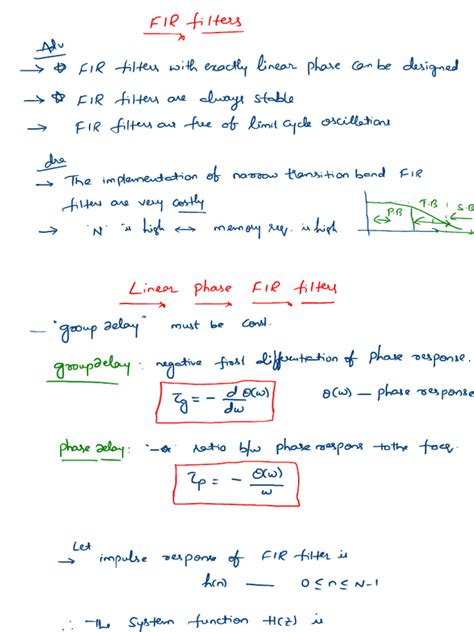 FIR filters
Adv
→ ✩ FIR filters with exactly linear phase can be designed
→ ✩ FIR filters are always stable
→ FIR filters are free of limit cycle oscillations
dis
→ The implementation of narrow transition band FIR
filters are very costly
→ 'N' is high ↔ memory req. is high
P.B T.B S.B
Linear phase FIR filters
— "group delay" must be const.
group delay : negative first differentiation of phase response.
τg = - d/dω θ(ω) θ(ω) — phase response
phase delay : -ve ratio b/w phase respons to the freq.
τp = - θ(ω)/ω
→ Let impulse response of FIR filter is
h(n) — 0 ≤ n ≤ N-1
∴ The system function H(z) is